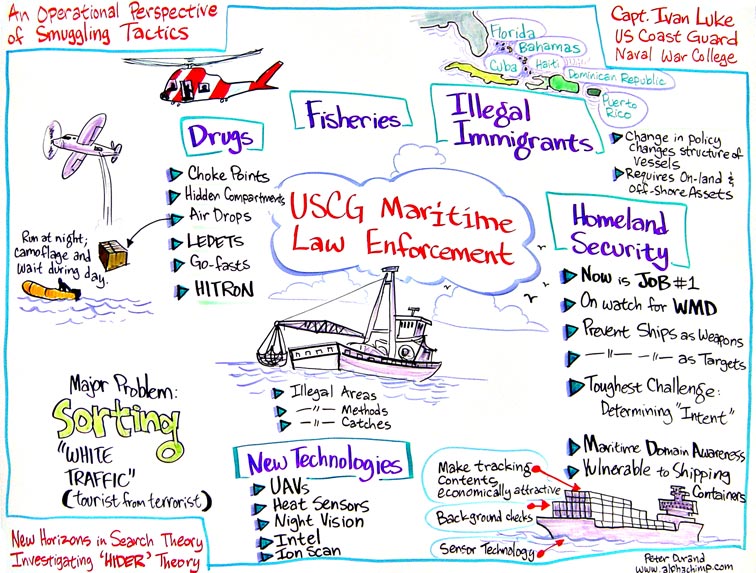 An Operational Perspective
of Smuggling Tactics
Capt. Ivan Luke
US Coast Guard
Naval War College
Florida
Bahamas
Cuba
Haiti
Dominican Republic
Puerto
Rico
Drugs
Choke Points
Hidden Compartments
Air Drops
LEDETS
Go-fasts
HITRON
Run at night;
camoflage and
wait during day.
Fisheries
Illegal
Immigrants
Change in policy
changes structure of
vessels
Requires On-land &
Off-shore Assets
USCG Maritime
Law Enforcement
Homeland
Security
Now is JOB #1
On watch for WMD
Prevent Ships as Weapons
—"— —"— as Targets
Toughest Challenge:
Determining "Intent"
Maritime Domain Awareness
Vulnerable to Shipping
Containers
Illegal Areas
—"— Methods
—"— Catches
Major Problem:
Sorting
"WHITE
TRAFFIC"
(tourist from terrorist)
New Technologies
UAVs
Heat Sensors
Night Vision
Intel
Ion Scan
Make tracking
contents
economically attractive
Background checks
Sensor Technology
New Horizons in Search Theory
Investigating 'HIDER' Theory
Peter Durand
www.alphachimp.com